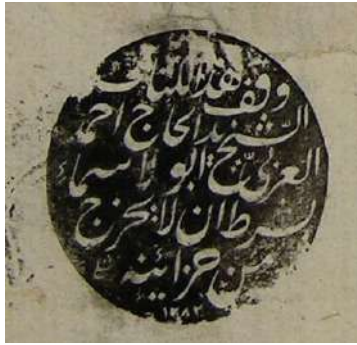 وقف هذا الكتاب
الشيخ سيد الحاج احمد
العربي ابو الاسماء
بشرط ان لا يخرج
من خزائنه
١٢٨٢